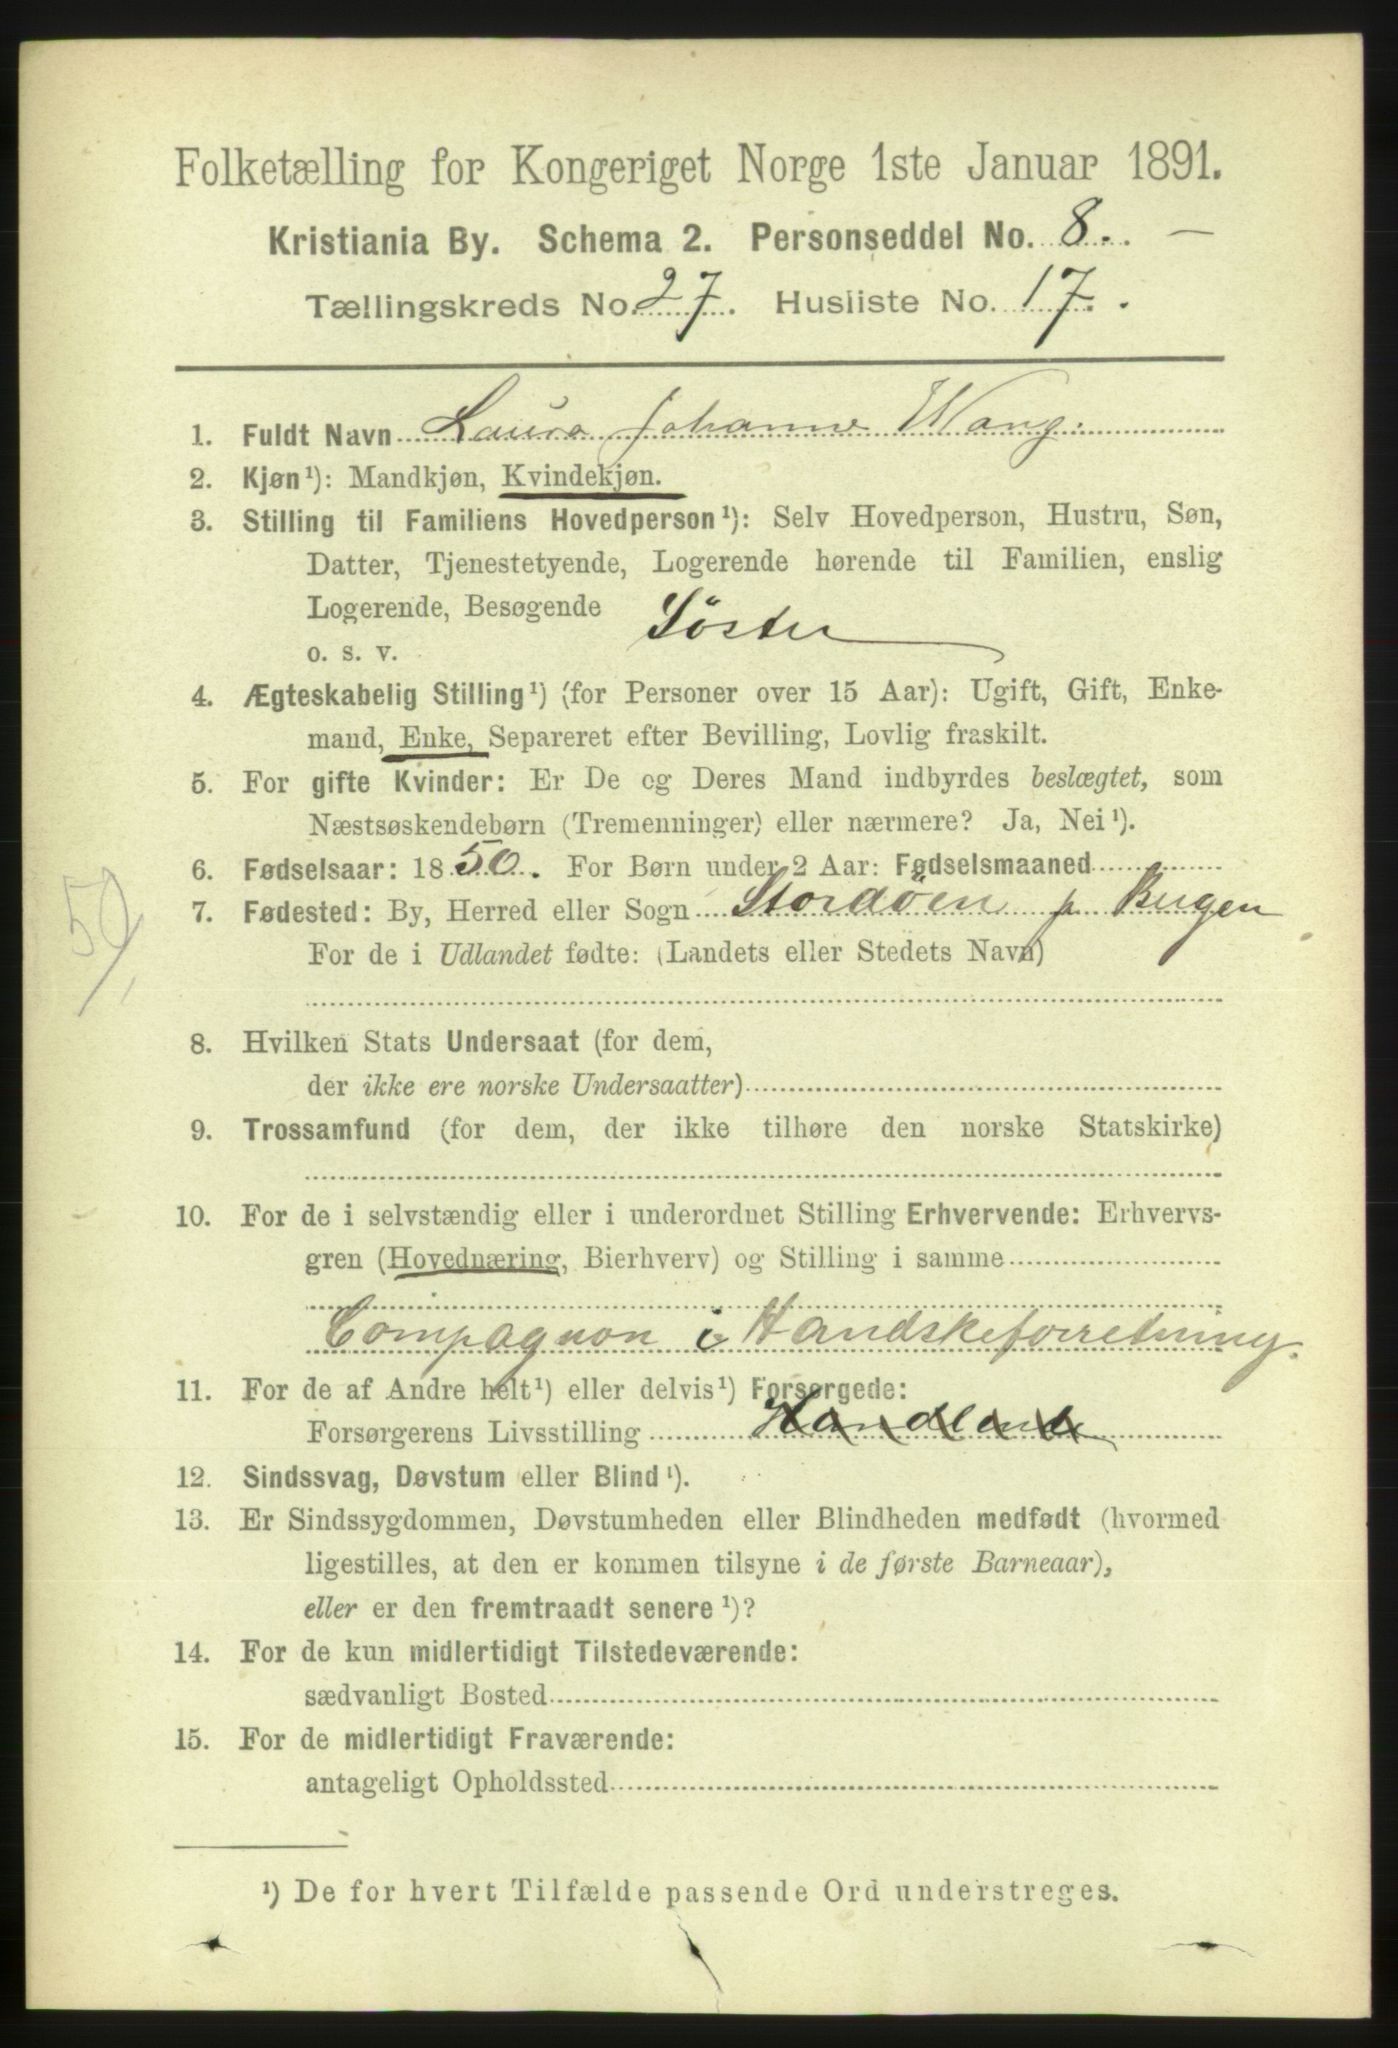 Folketælling for Kongeriget Norge 1ste Januar 1891.
Kristiania By. Schema 2. Personseddel No. 8. —
Tællingskreds No. 27. Husliste No. 17.
1. Fuldt Navn Laura Johanne Wang.
2. Kjøn¹): Mandkjøn, Kvindekjøn.
3. Stilling til Familiens Hovedperson¹): Selv Hovedperson, Hustru, Søn,
Datter, Tjenestetyende, Logerende hørende til Familien, enslig
Logerende, Besøgende Söster
o. s. v.
4. Ægteskabelig Stilling¹) (for Personer over 15 Aar): Ugift, Gift, Enke-
mand, Enke, Separeret efter Bevilling, Lovlig fraskilt.
5. For gifte Kvinder: Er De og Deres Mand indbyrdes beslægtet, som
Næstsøskendebørn (Tremenninger) eller nærmere? Ja, Nei¹).
6. Fødselsaar: 1850. For Børn under 2 Aar: Fødselsmaaned
7. Fødested: By, Herred eller Sogn Stordöen p Bergen
For de i Udlandet fødte: (Landets eller Stedets Navn)
50
8. Hvilken Stats Undersaat (for dem,
der ikke ere norske Undersaatter)
9. Trossamfund (for dem, der ikke tilhøre den norske Statskirke)
10. For de i selvstændig eller i underordnet Stilling Erhvervende: Erhvervs-
gren (Hovednæring, Bierhverv) og Stilling i samme
Compagnon i Handskeforretning.
11. For de af Andre helt¹) eller delvis¹) Forsørgede:
Forsørgerens Livsstilling Handlende
12. Sindssvag, Døvstum eller Blind¹).
13. Er Sindssygdommen, Døvstumheden eller Blindheden medfødt (hvormed
ligestilles, at den er kommen tilsyne i de første Barneaar),
eller er den fremtraadt senere¹)?
14. For de kun midlertidigt Tilstedeværende:
sædvanligt Bosted
15. For de midlertidigt Fraværende:
antageligt Opholdssted
¹) De for hvert Tilfælde passende Ord understreges.